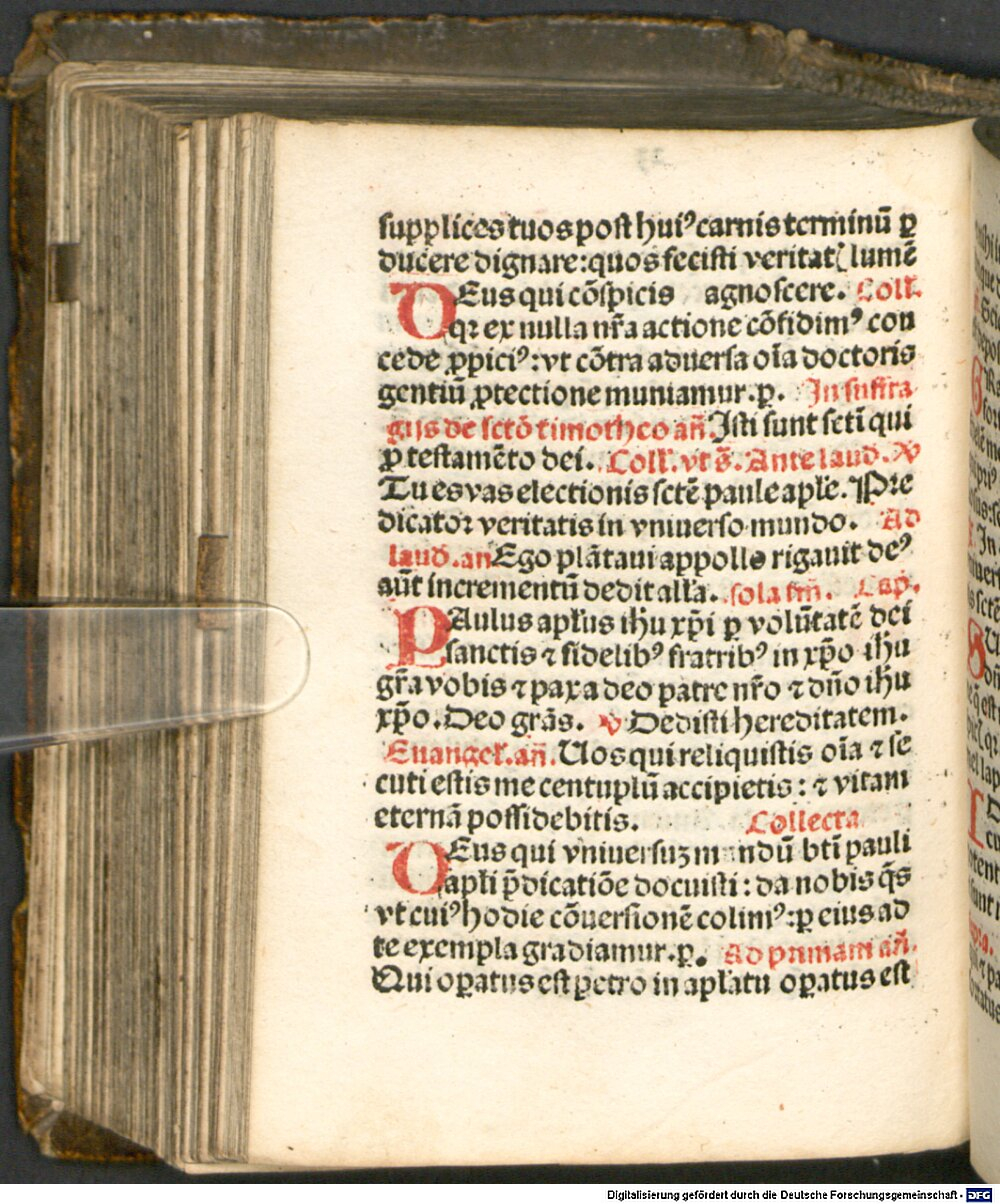 supplices tuos post huiꝰ carnis terminū ꝑ
ducere dignare: quos fecisti veritatꝭ lumē
DEus qui cōspicis agnoscere. Coll̄.
qꝛ ex nulla nr̄a actione cōfidimꝰ con
cede ꝓpiciꝰ: vt cōtra aduersa oīa doctoris
gentiū ꝓtectione muniamur. p. In suffra
gijs de sctō timotheo an̄. Isti sunt sctī qui
ꝓ testamēto dei. Coll̄. vt s̄. Ante laud. ꝟ
Tu es vas electionis sctē paule aplē. Pre
dicator veritatis in vniuerso mundo. Ad
laud. an̄ Ego plātaui appollo rigauit deꝰ
aūt incrementū dedit alla. sola fm̄. Cap.
PAulus apl̄us ihu xp̄i ꝑ volūtatē dei
sanctis ⁊ fidelibꝰ fratribꝰ in xp̄o ihu
gr̄a vobis ⁊ pax a deo patre nr̄o ⁊ dn̄o ihu
xp̄o. Deo grās. ꝟ Dedisti hereditatem.
Euangel̄. an̄. Uos qui reliquistis oīa ⁊ se
cuti estis me centuplū accipietis: ⁊ vitam
eternā possidebitis. Collecta
DEus qui vniuersuꝫ mundū bt̄i pauli
apl̄i p̄dicatiōe docuisti: da nobis q̄s
vt cuiꝰ hodie cōuersionē colimꝰ: ꝑ eius ad
te exempla gradiamur. p. Ad primam an̄.
Qui oꝑatus est petro in apl̄atu oꝑatus est
Digitalisierung gefördert durch die Deutsche Forschungsgemeinschaft - DFG